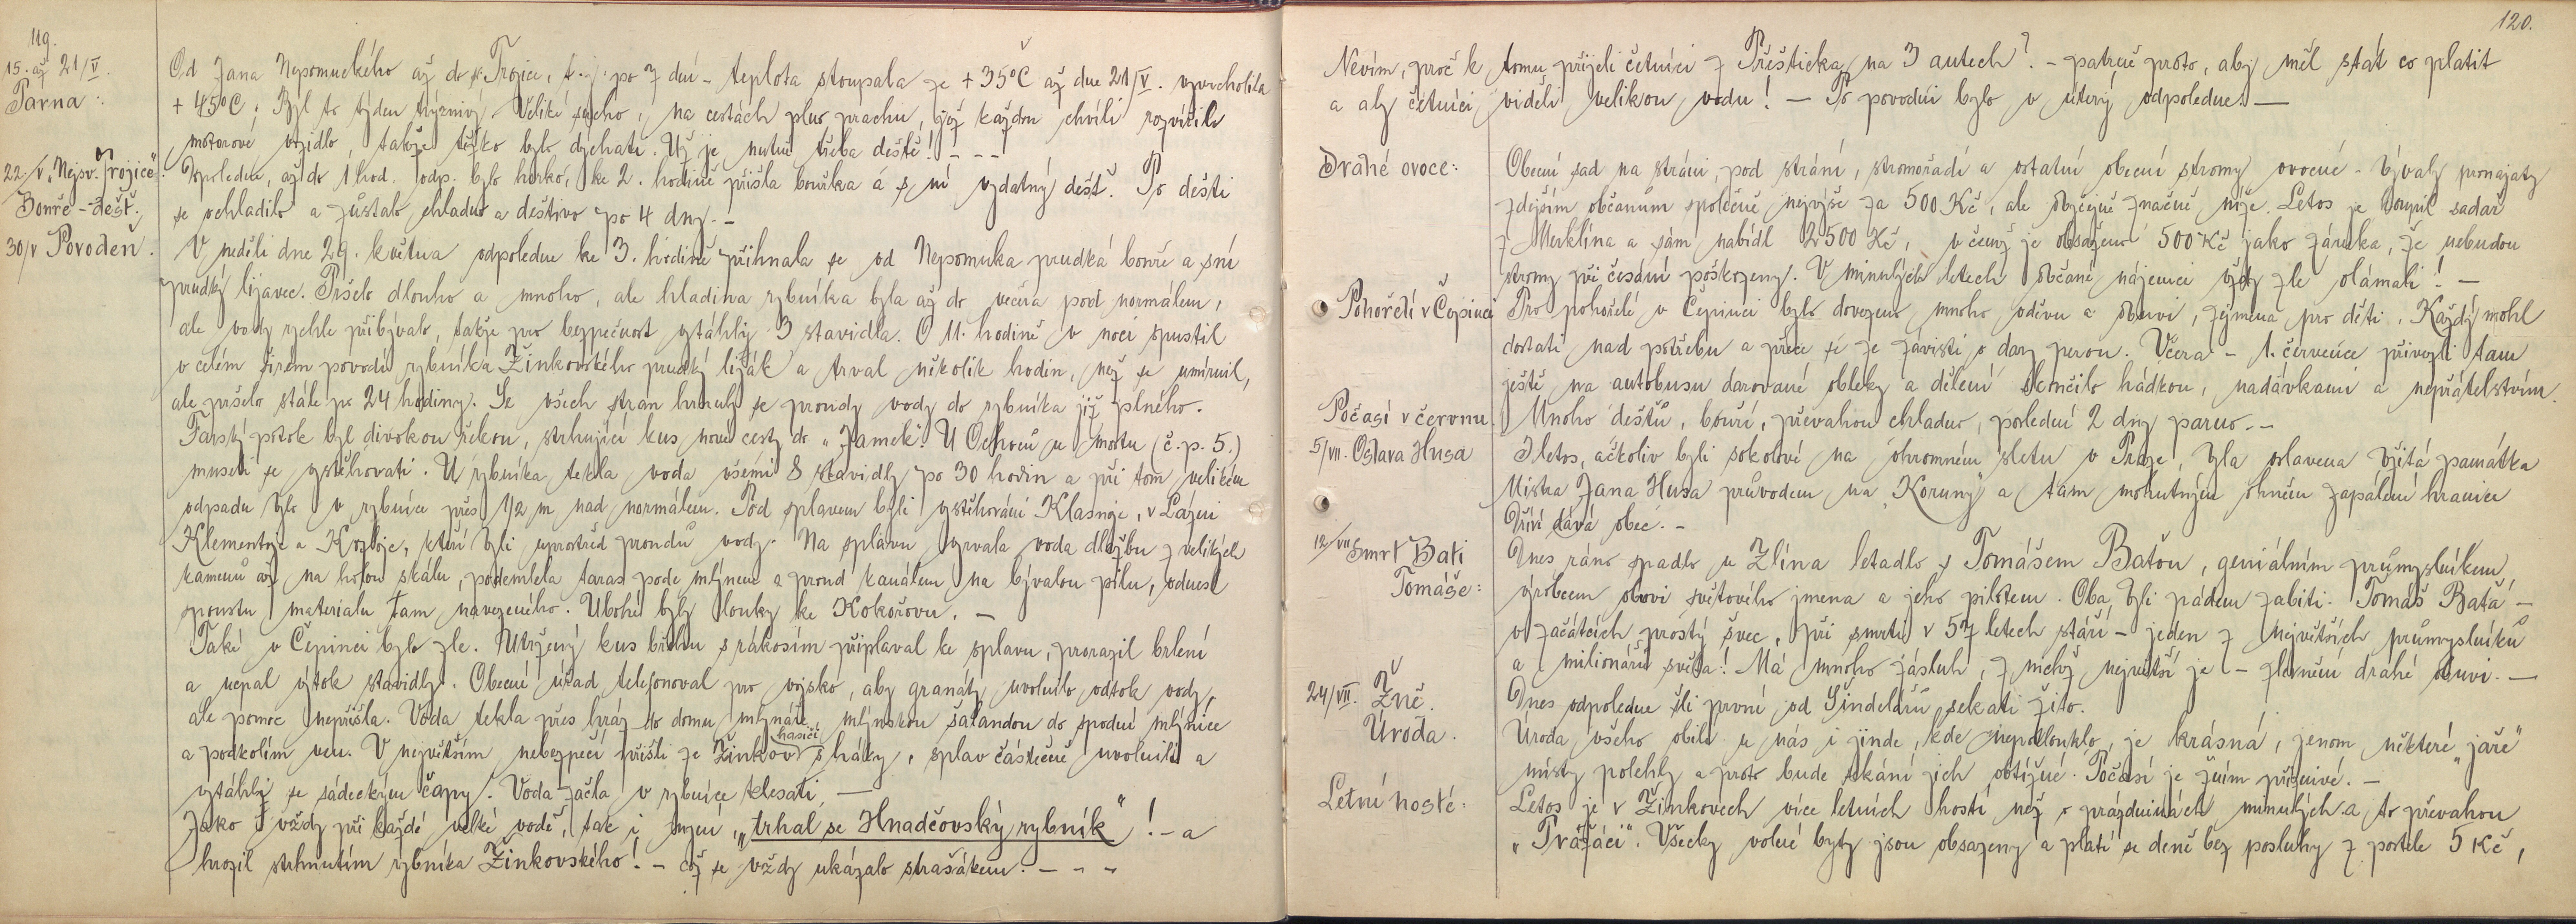 119.
15. až 21/V.
Parna:
Od Jana Nepomuckého až do sv. Trojice, t.j. po 7 dní - teplota stoupala ze + 35°C až dne 21/V. vyvrcholila
+ 45°C; Byl to týden trýznivý. Veliké sucho, na cestách plno prachu, jejž každou chvíli rozvířilo
motorové vozidlo, takže těžko bylo dýchati. Už je nutně třeba deště! - - -
22./V. „Nejsv. Trojice"
Bouře - déšť.
Dopoledne, až do 1 hod. odp. bylo horko, ke 2. hodině přišla bouřka a s ní vydatný déšť. Po dešti
se ochladilo a zůstalo chladno a deštivo po 4 dny. -
30/V Povodeň.
V neděli dne 29. května odpoledne ke 3. hodině přihnala se od Nepomuka prudká bouře a s ní
prudký lijavec. Pršelo dlouho a mnoho, ale hladina rybníka byla až do večera pod normálem,
ale vody rychle přibývalo, takže pro bezpečnost vytáhly 3 stavidla. O 11. hodině v noci spustil
v celém širém povodí rybníka Žinkovského prudký liják a trval několik hodin, než se umírnil,
ale pršelo stále po 24 hodiny. Se všech stran hrnuly se proudy vody do rybníka již plného.
Farský potok byl divokou řekou, strhující kus nové cesty do „Zámek". U Ochoců u mostu (č.p. 5.)
museli se vystěhovati. U rybníka tekla voda všemi 8 stavidly po 30 hodin a při tom velikém
odpadu bylo v rybníce přes 1/2 m nad normálem. Pod splavem byli vystěhováni Klasnoje, v Lázni
Klementoje a Krzoje, kteří byli uprostřed proudů vody. Na splavu vyrvala voda dlažbu z velikých
kamenů až na holou skálu, podemlela taras pode mlýnem a proud kanálem na bývalou pilu, odnesl
spoustu materialu tam navezeného. Ubohé byly louky ke Kokořovu. -
Také v Čepinci bylo zle. Utržený kus břehu s rákosím připlaval ke splavu, prorazil brlení
a ucpal výtok stavidly. Obecní úřad telefonoval pro vojsko, aby granáty uvolnilo odtok vody,
ale pomoc nepřišla. Voda tekla přes hráz do domu mlynáře, mlýnskou šalandou do spodní mlýnice
a podkolím ven. V největším nebezpečí přišli ze Žinkov hasiči s háky, splav částečně uvolnili a
vytáhli se sádeckým čapy. Voda začla v rybníce klesati. -
Jako vždy při každé velké vodě, tak i nyní, „trhal se Hnadčovský rybník"! - a
hrozil strhnutím rybníka Žinkovského! - což se vždy ukázalo strašákem. - - -
120.
Nevím, proč k tomu přijeli četníci z Přešticka na 3 autech? - patrně proto, aby měl stát co platit
a aby četníci viděli velikou vodu! - Po povodni bylo v úterý odpoledne. -
Drahé ovoce:
Obecní sad na stráni, pod strání, stromořadí a ostatní obecní stromy ovocné - bývaly pronajaty
zdejším občanům společně nejvýše za 500 Kč, ale obyčejně značně níže. Letos je koupil sadař
z Merklína a sám nabídl 2500 Kč, v čemž je obsaženo 500 Kč jako záruka, že nebudou
stromy při česání poškozeny. V minulých letech občané nájemci vždy zle olámali! -
Pohořelí v Čepinci
Pro pohořelé v Čepinci bylo dovezeno mnoho oděvu a obuvi, zejména pro děti. Každý mohl
dostati nad potřebu a přece se ze závisti o dary perou. Včera - 1. července přivezli tam
ještě na autobusu darované obleky a dělení skončilo hádkou, nadávkami a nepřátelstvím.
Počasí v červnu.
Mnoho dešťů, bouří, převahou chladno, poslední 2 dny parno. -
5/VII. Oslava Husa
I letos, ačkoliv byli sokolové na ohromném sletu v Praze, byla oslavena Božitá památka
Mistra Jana Husa průvodem na „Koruny" a tam mohutným ohněm zapálení hranice
Dříví dává obec. -
12/VII Smrt Bati
Tomáše:
Dnes ráno spadlo u Zlína letadlo s Tomášem Baťou, geniálním průmyslníkem,
výrobcem obuvi světového jmena a jeho pilotem. Oba byli pádem zabiti. Tomáš Baťa -
v začátcích prostý švec, při smrti v 57 letech stáří - jeden z největších průmyslníků
a milionářů světa! Má mnoho zásluh, z nichž největší je - zlevnění drahé obuvi. -
24/VII. Žně.
Dnes odpoledne šli první od Šindelářů sekati žito.
Úroda.
Úroda všeho obilí u nás i jinde, kde nepotlouklo, je krásná, jenom některé „jaře"
místy polehly a proto bude sekání jich obtížné. Počasí je žním příznivé. -
Letní hosté:
Letos je v Žinkovech více letních hostí než o prázdninách minulých a to převahou
„Pražáci". Všecky volné byty jsou obsazeny a platí se deně bez posluhy z postele 5 Kč,